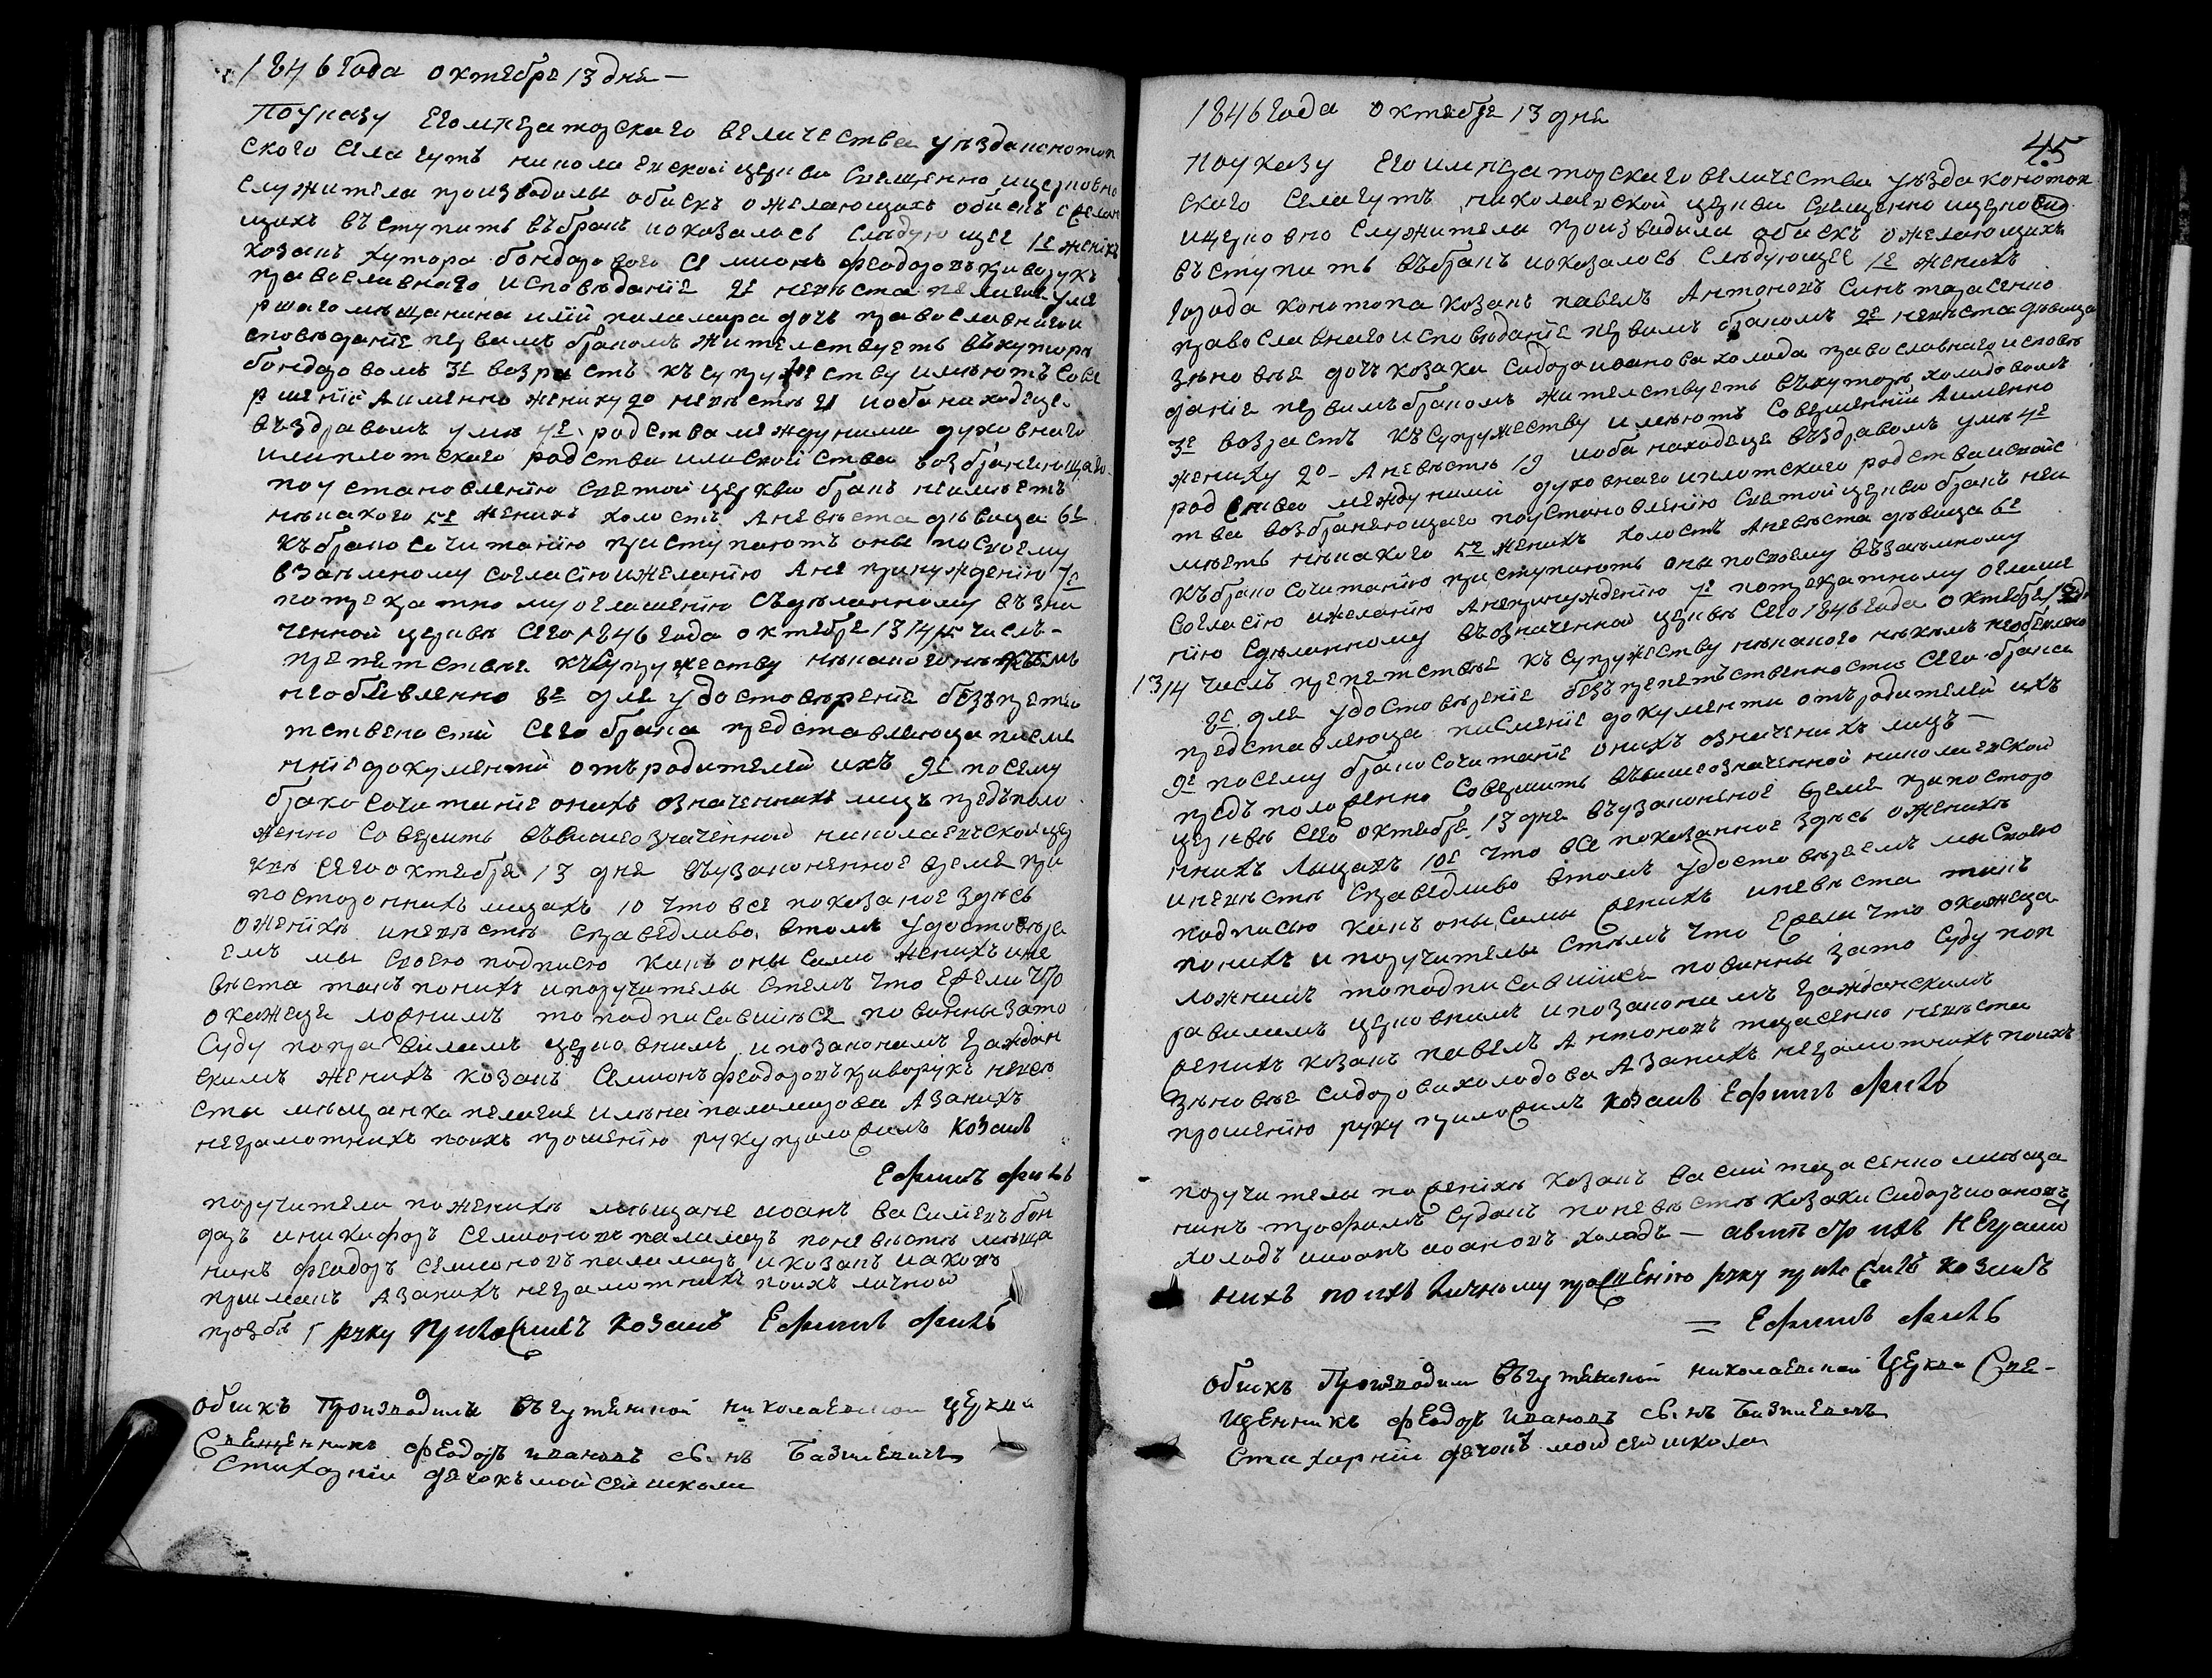 1846 года октебря 13 дня —
По Указу Его Императорскаго величества уезда конотоп
ского села гутъ николаевской церкви Священно ицерковно
служители производили обискъ ожелающихъ
щихъ въступить въбракъ иоказалось следующее 1е женихъ
козакъ хутора бондарового Семионъ феодоровъ криворукъ
православнаго исповеданіе 2е невеста пелагея уме
ршаго мещанина иліи паламара дочь православнаго и
споведаніе первымъ бракомъ жительствуетъ въхуторе
бондаровомъ 3е возрастъ къ супружеству имеютъ сове
ршеніе Аименно жениху 20 невесте 21 иоба находеця
въздравомъ уме 4е родства междуними духовнаго
илиплотскаго родства илисвойства возбраняющаго
поустановленію святой церкви бракъ неимеетъ
некакого 5е женихъ холостъ Аневеста девица 6е
къбракосочитанію приступаютъ оны посвоему
взаемному согласію ижеланію Ане принужденію 7е
потрекратному оглашенію съделанному въ зна
ченной церкве сего 1846 года октебря 13 14 15 числъ -
препетствія къ супружеству некакого некемъ
необявленно 8е для удостоверенія безпрепят
ственостий сего брака представлеюця писме
нніе документи отъ родителей ихъ 9е посему
бракосочитаніе онихъ означенихъ лицъ предъполо
женно совершить въвишеозначенной николаевской цер
кве сего октебря 13 дня въузаконенное время при
посторонихъ лицахъ 10 что все показаное здесь
оженихе иневесте справедливо втомъ удостовере
емъ мы своею подписю какъ оны сами женихъ ине
веста такъ понихъ ипоручителы стемъ что Ежели что
окажеця ложнимъ то подписавшіеся повинны зато
Суду поправиламъ церковнимъ, ипозаконамъ Граждан
скимъ женихъ козакъ Семионъ феодоровъ криворукъ невес
ста мещанка пелагея илына паламарова Азанихъ
неграмотнихъ поихъ прошенію руку приложилъ козакъ
Ефимъ филь
поручители по женихе мещане иоанъ василиевъ бон
даръ иникифоръ Семионовъ паламаръ поневесте меща
нинъ феодоръ Семионовъ паламаръ икозакъ иаковъ
примакъ Азанихъ неграмотнихъ поихъ личной
прозбе руку приложилъ козакъ Ефимъ филь
Обискъ Производили въгутянской николаевской церкви
Священникъ феодоръ ивановъ сынъ Базилевичь
Стихарній дячокъ мойсей школа
1846 года октебря 13 дня
45
По указу Его императорскаго величества уезда конотоп
ского села гутъ николаевской церкви священно
ицерковно служители производили обискъ ожелающихъ
въступить въбракъ иоказалось следующее 1е женихъ
города конотопа козакъ павелъ Антоновъ синъ тарасенко
православнаго исповеданіе первымъ бракомъ 2е невеста девица
зеновея дочь козака сидора иванова холода православнаго испове
даніе первимъ бракомъ жительствуетъ въхуторе холодовомъ
3е возрастъ къ супружеству имеютъ совершеніи Аименно
жениху 20 - Аневесте 19 иоба находеця въздравомъ уме 4е
родства междуними духовнаго иплотскаго родства исвойс
тва возбраняющаго поустановленію святой церкви бракъ неи
меетъ некакого 5е женихъ холостъ Аневеста девица 6е
къбракосочитанію приступаютъ оны посвоему въземному
согласію ижеланію Анепринужденію 7е потрекратному оглаше
нію сделанному въозначенной церкве сего 1846 года октебря
13/14 числъ препетствія къ супружеству некакого некемъ необявлено
8е для удостовереніе безъпрепятственности сего брака
представлеюця писменіе документи отъ родителей ихъ
9е посему бракосочитаніе онихъ означенихъ лицъ —
предъположенно совершить въвишеозначенной николаевской
церкве сего октебря 13 дня въузаконеное время припосторо
ннихъ лицахъ 10е что все показанное здесь оженихе
иневесте справедливо втомъ удостовереемъ мы своею
подписью какъ оны сами женихъ иневеста такъ
понихъ и поручителы стемъ что Ежели что окажеця
ложнимъ топодписавшіеся повинны зато суду поп
равиламъ церковнимъ ипозаконамъ гражданскимъ
женихъ козакъ павелъ Антоновъ тарасенко невеста
зеновея сидорова холодова Азанихъ неграмотнихъ поихъ
прошенію руку приложилъ козакъ Ефимъ филь
поручители по женихе козакъ васили тарасенко меща
нинъ трофимъ судакъ поневесте козаки сидоръ иоановъ
холодъ иивань иоановъ холодъ — авместо ихъ неграмот
нихъ поихъ личному прошенію руку приложилъ козакъ
= Ефимъ филь
Обискъ Производили въгутянской николаевской церкви Свя-
щенникъ феодоръ ивановъ сынъ Базилевичъ
Стихарній дячокъ мойсей школа